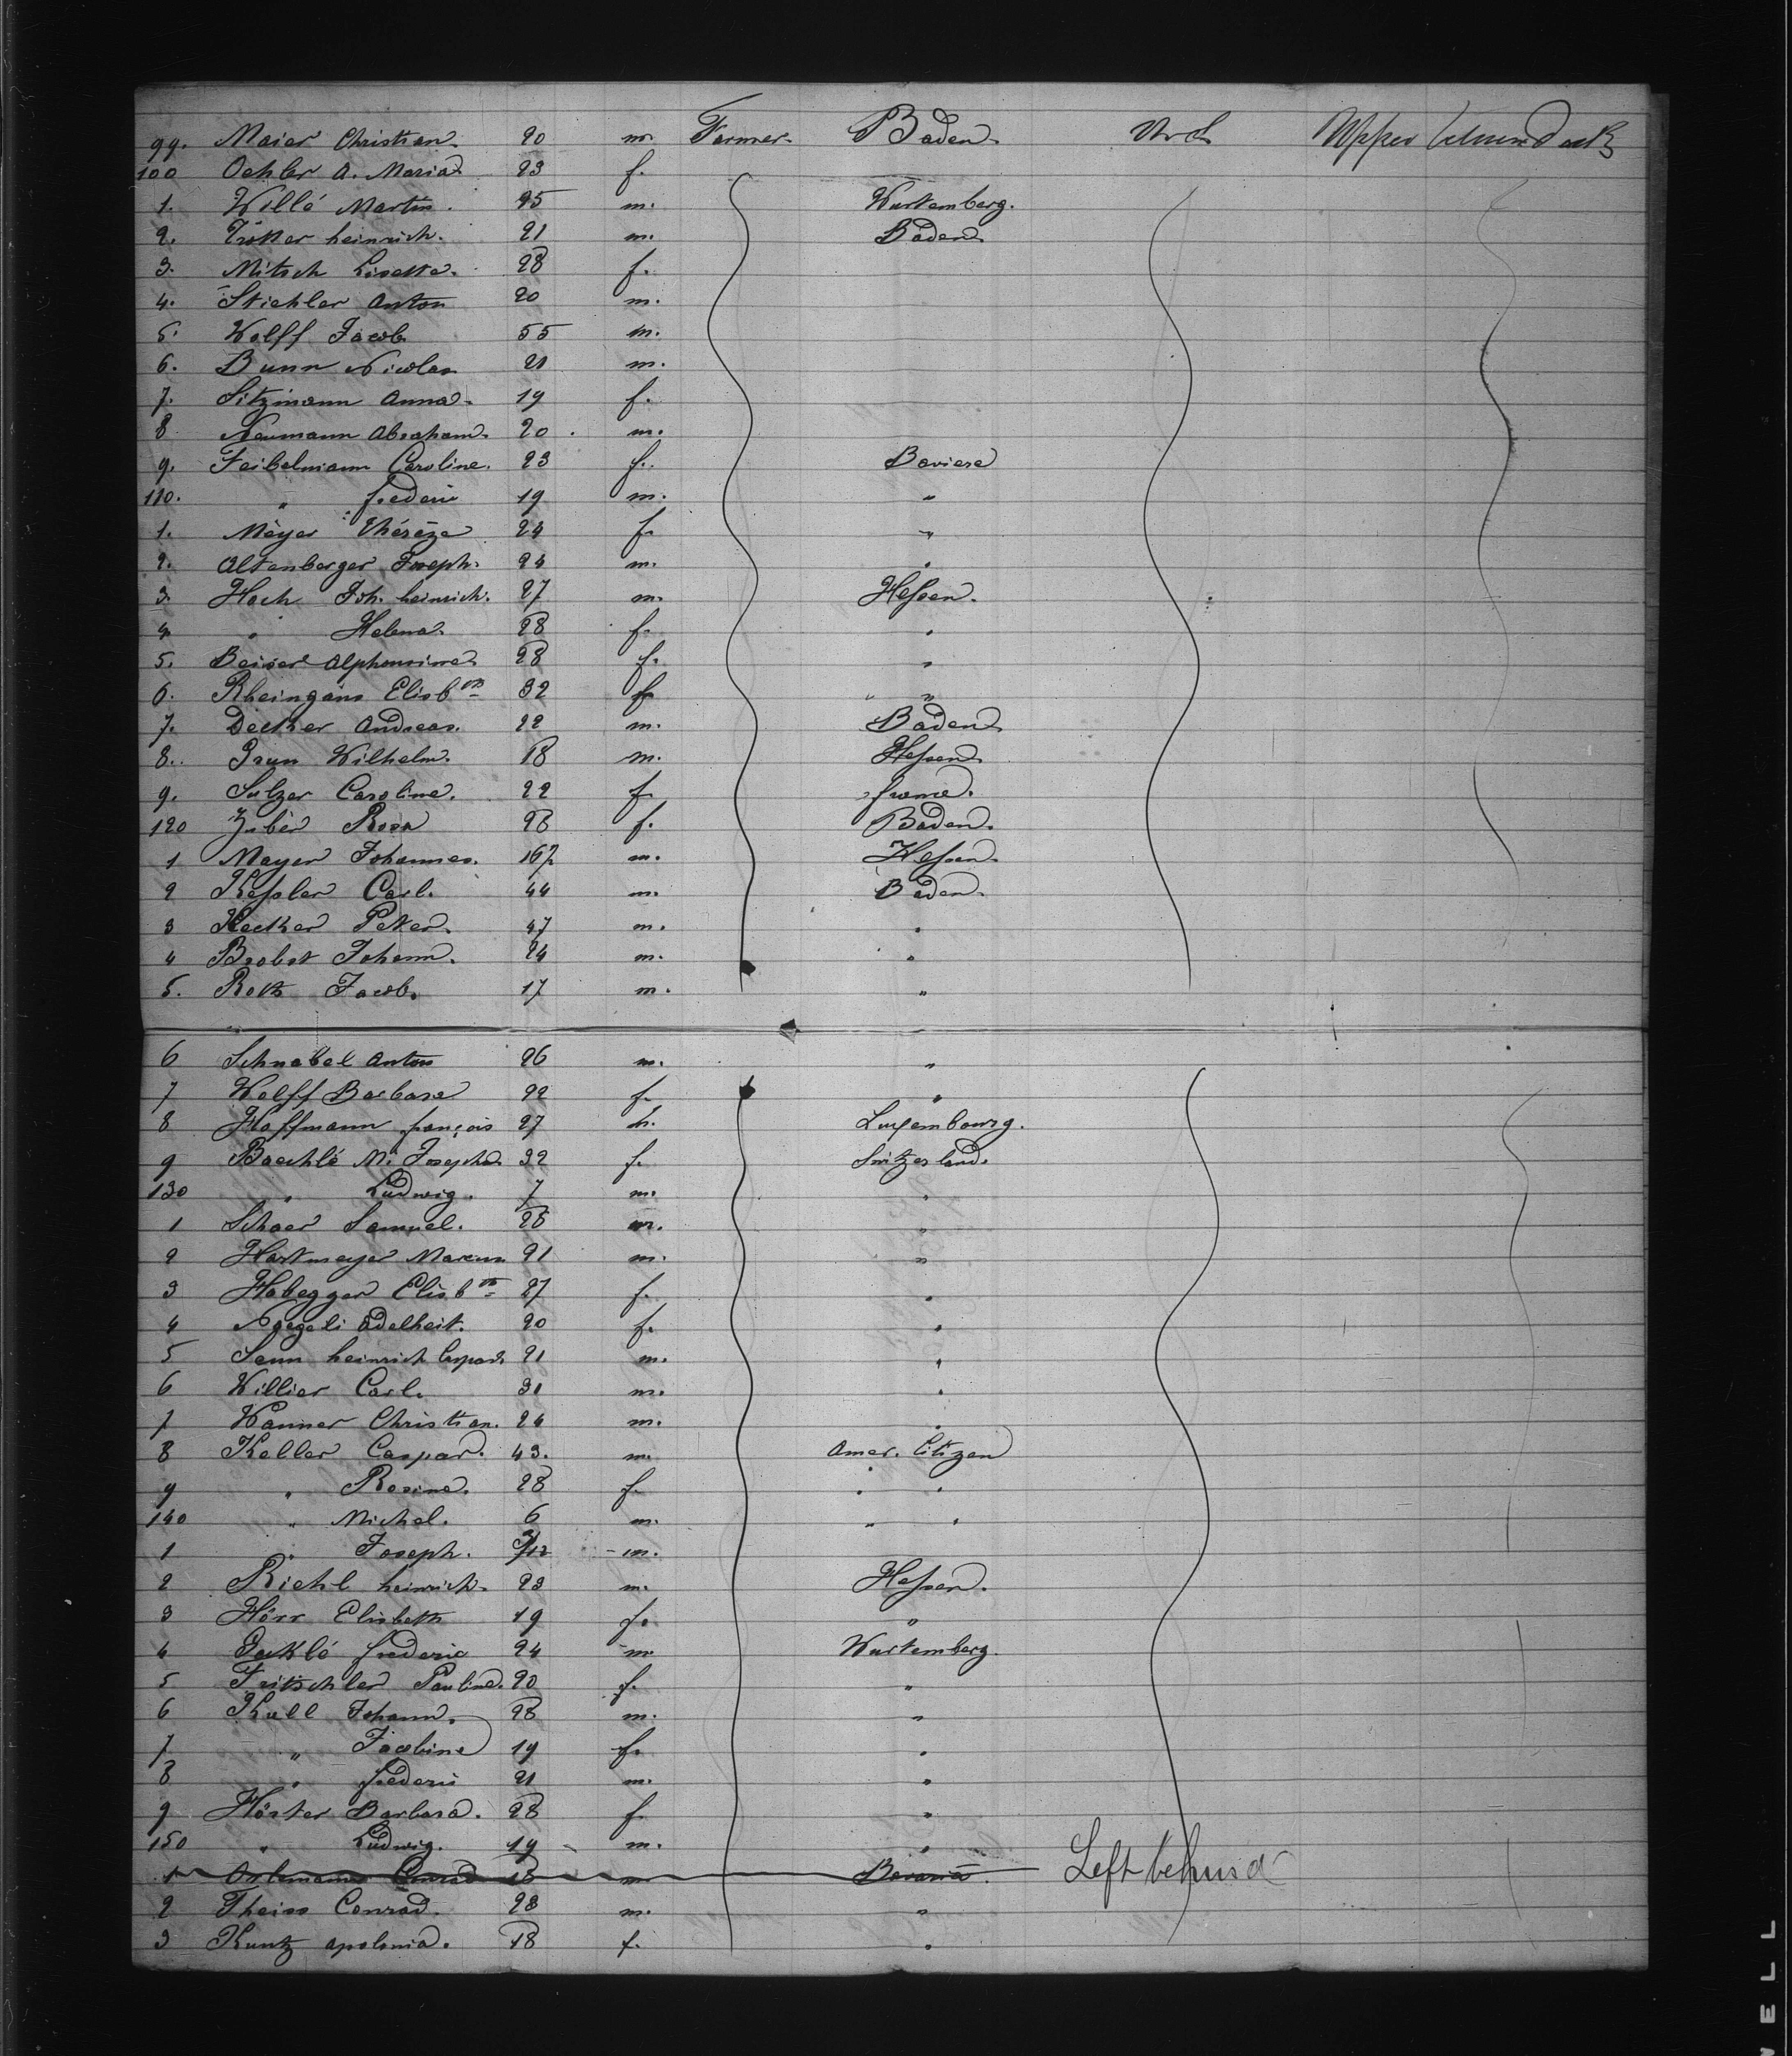 99. Maier Christian. 20 m. Farmer. Baden. U. S. Upper
100 Oehler A. Maria 23 f.
1. Willé Martin. 25 m. Wurtemberg.
2. heinrich. 21 m. Baden.
3. Mitsch Lisette. 28 f.
4. Stiehler Anton 20 m.
5. Wolff Jacob 55 m.
6. Bunn Nicolas 21 m.
7. Sitzmann Anna. 19 f.
8 Neumann Abraham. 20. m.
9. Feibelmann Caroline. 23 f. Baviere
110. " frederic 19 m. "
1. Meyer Thérèze 24 f. "
2. Altenberger Joseph. 24 m. "
3. Hoch Joh. heinrich. 27 m. Hessen.
4 " Helena. 28 f. "
5. Alphonsine 28 f. "
6. Rheingans Elisbth 32 f. " "
7. Decker Andreas. 22 m. Baden
8. Grun Wilhelm. 18 m. Hessen.
9. Sulzer Caroline. 22 f. france.
120 Rosa 28 f. Baden.
1 Mayer Johannes. m. Hessen.
2 Kessler Carl. 44 m. Baden.
3 Hecker Peter. 47 m. "
4 Brobst Johann. 24 m. "
5. Roth Jacob. 17 m. "
6 Schnabel Anton 26 m. "
7 Wolff Barbara 22 f. "
8 Hoffmann françois 27 Luxembourg.
9 Baechlé M. Josepha 32 f. Switzerland.
130 " Ludwig. 7 m. "
1 Schaer Samuel. 28 m. "
2 Hartmeyer Marcus 21 m. "
3 Habegger Elisbth 27 f. "
4 Naegeli Adelheit. 20 f. "
5 Senn heinrich Caspar. 21 m. "
6 Willier Carl. 31 m. "
7 Wanner Christian. 24 m. "
8 Keller Caspar. 43. m. Amer. Citizen
9 " Rosine. 28 f. " "
140 " Michel. 6 m. " "
1 " Joseph. m.
2 Riehl heinrich. 23 m. Hessen.
3 Hörr Elisbeth 19 f. "
4 frederic 24 m Wurtemberg.
5 Fritschler Pauline. 20 f. "
6 Kull Johann. 28 m. "
7 " Jacobine 19 f. "
8 " frederic 21 m. "
9 Hörter Barbara. 28 f. "
150 " Ludwig. 19 m. "
1 Conrad 18 m Bavaria. Left behind
2 Theiss Conrad. 28 m. "
3 Kuntz apolonia. 18 f. "